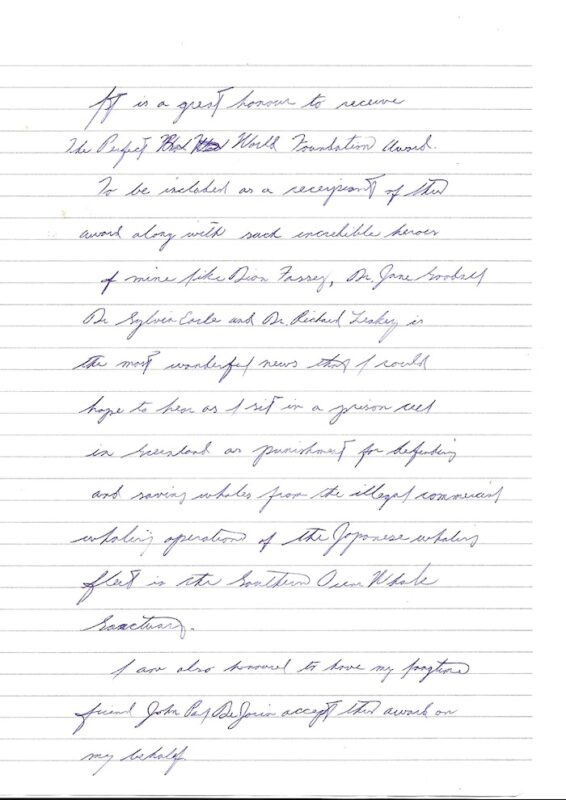 It is a great honour to receive
The Perfect World Foundation Award.
To be included as a receipiant of this
award along with such incredible heroes
of mine like Dian Fossey, Dr. Jane Goodall
Dr Sylvia Earle and Dr. Richard Leakey is
the most wonderful news that I could
hope to hear as I sit in a prison cell
in Greenland as punishment for defending
and saving whales from the illegal commercial
whaling operations of the Japanese whaling
fleet in the Southern Ocean Whale
Sanctuary.
I am also honoured to have my longtime
friend John Paul DeJoria accept this award on
my behalf